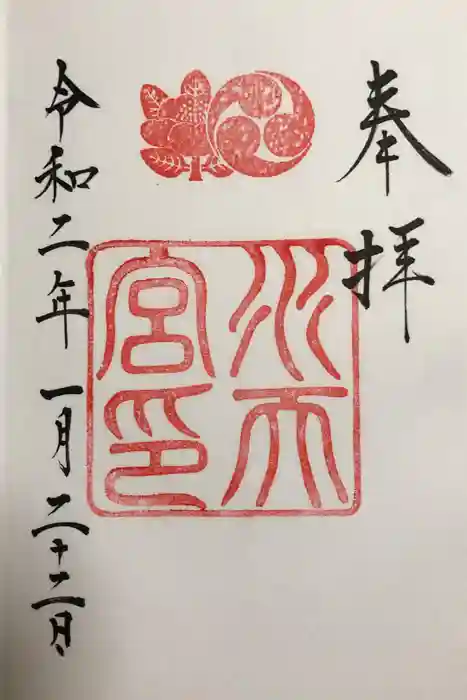 奉拝
水天宮印
令和二年一月二十二日